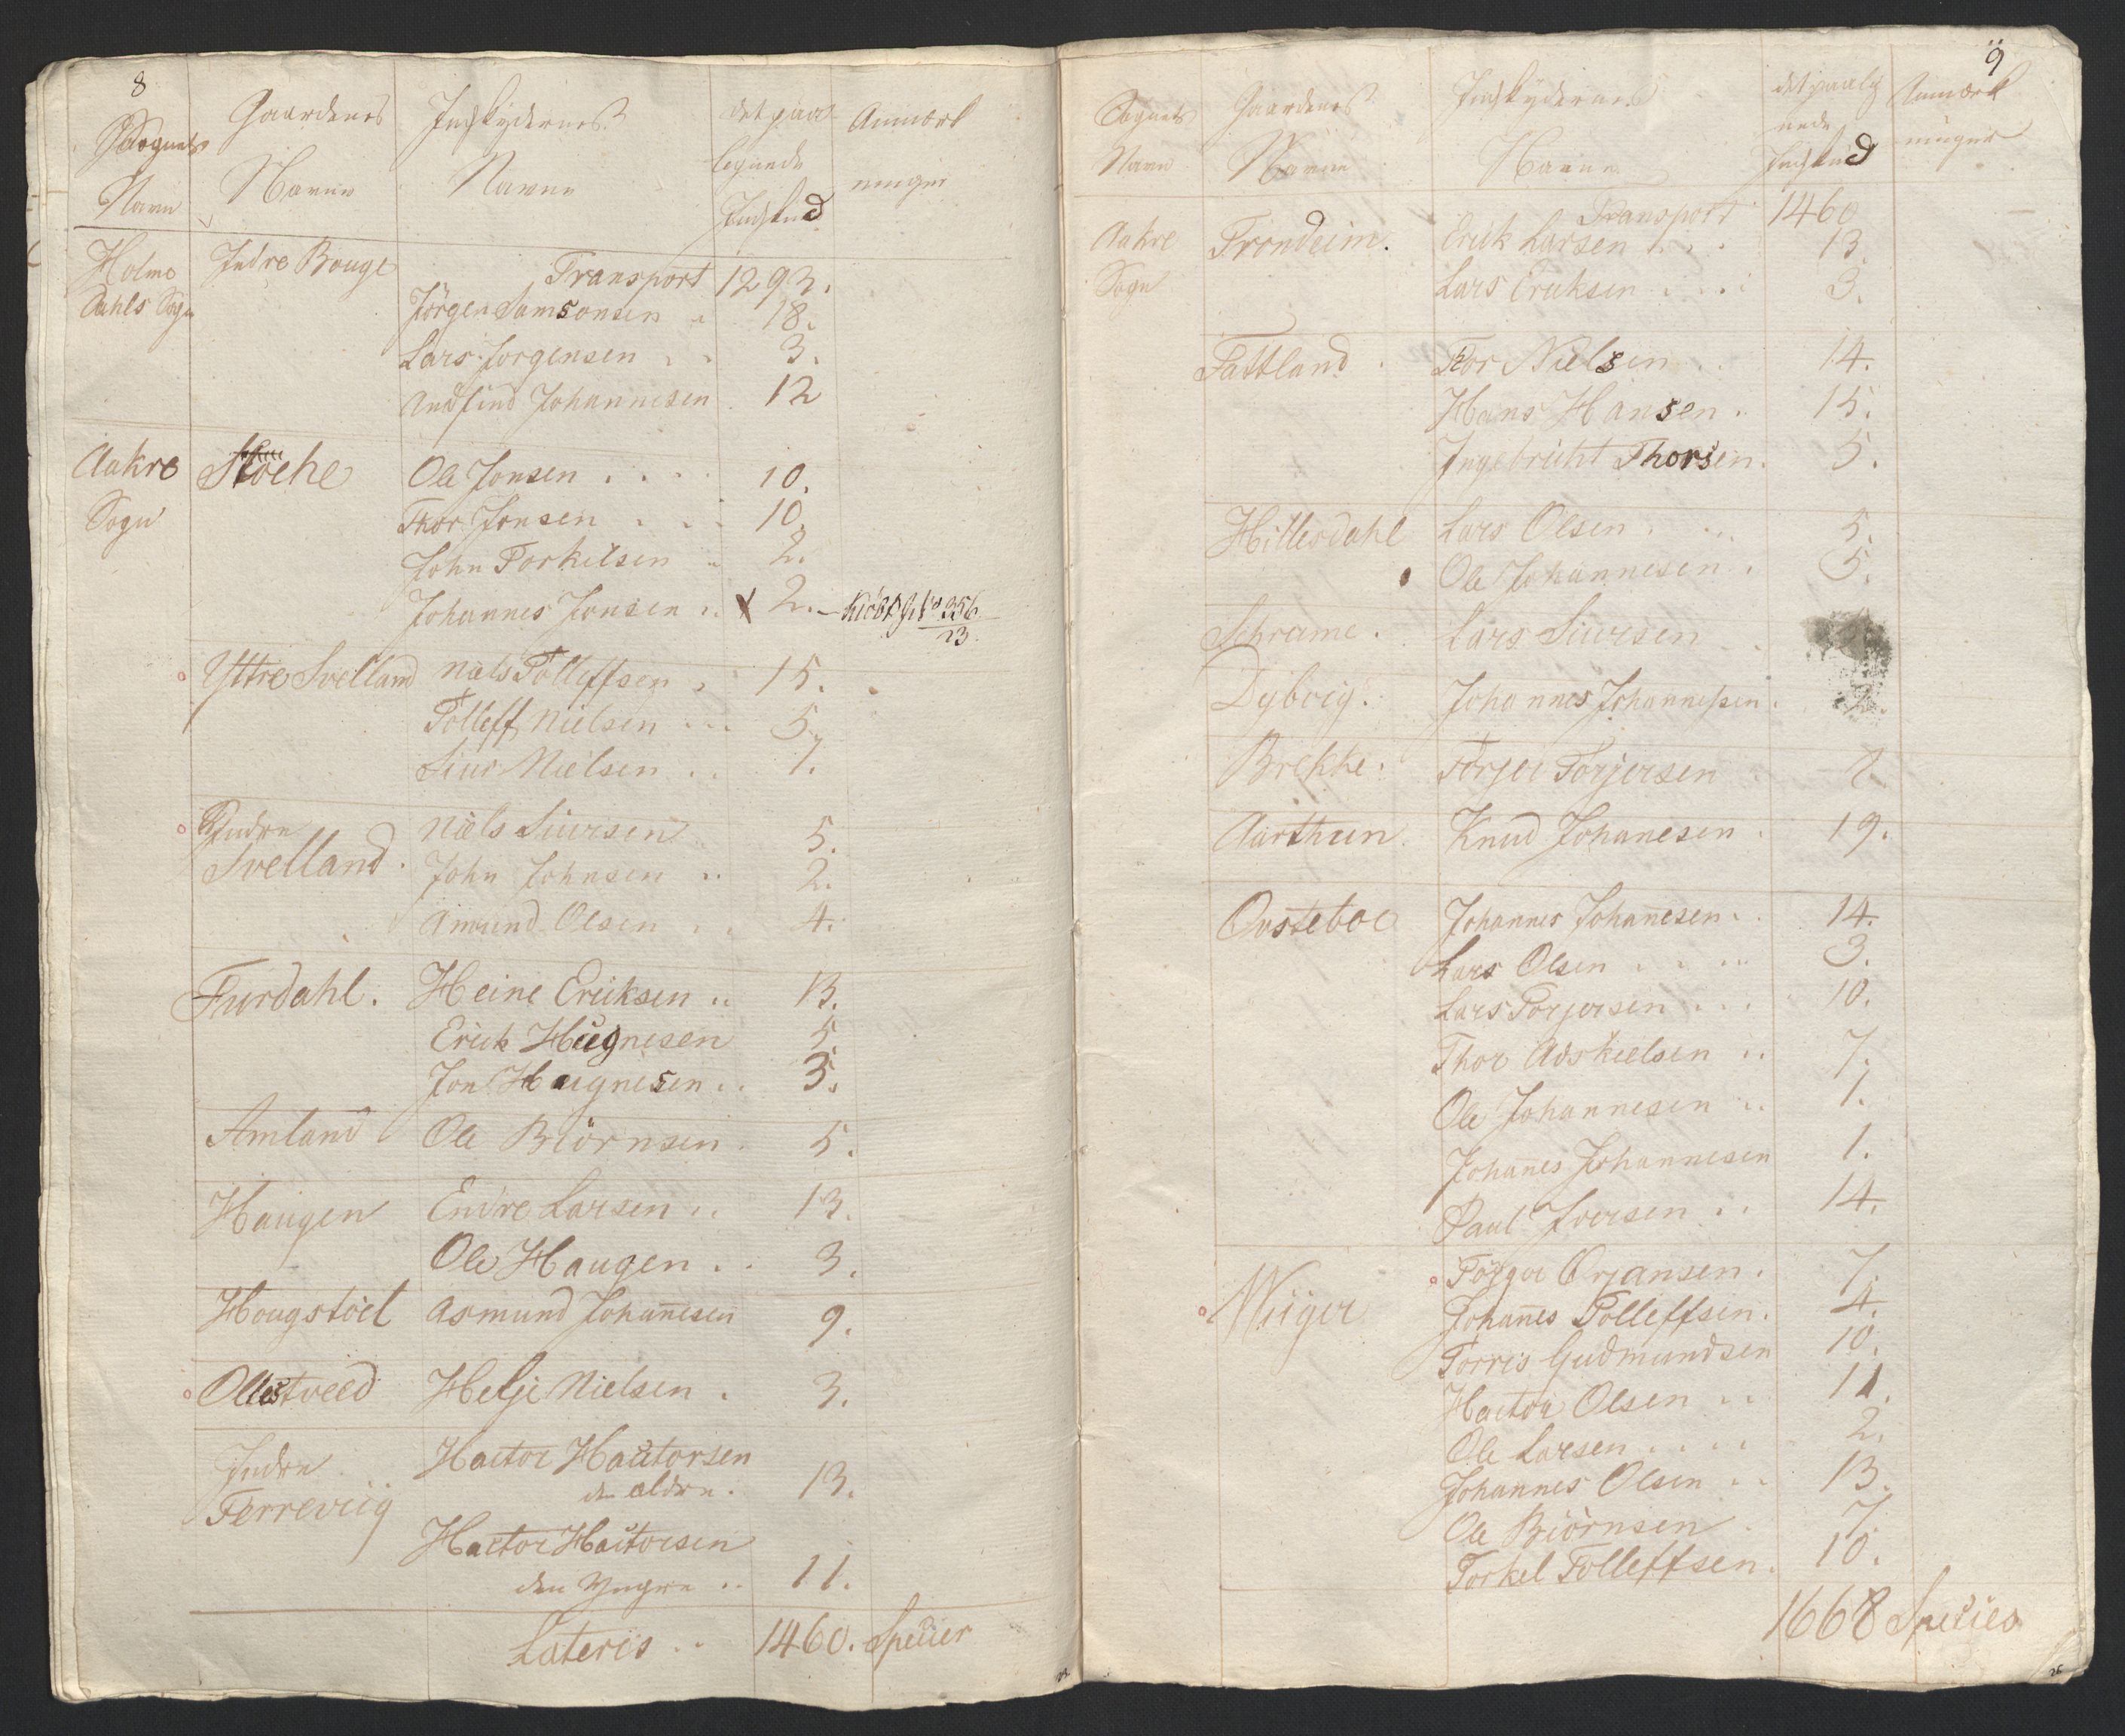 8
Sognets Navn | Gaardenes Navne | Indskydernes Navne | det paalegnede Indskud | Anmærkninger
Holme Dahls Sogn | Indre Bouge | Transport | 1293.
Jörgen Samsonsen | 18.
Lars Jorgensen | 3.
Andfind Johannesen | 12
Aakre Sogn | Stoehe | Ole Jonsen | 10.
Thor Jonsen | 10.
John Torkilsen | 2.
Johannes Jonsen | x 2. | 356/23
Yttre Svelland | Niels Tolleffsen | 15.
Tolleff Nielsen | 5.
Siur Nielsen | 7.
Indre Svelland. | Niels Siursen | 5.
John Johnsen | 2.
Amund Olsen | 4.
Furdahl. | Heine Ericksen | 13.
Erick Hugnesen | 5.
Jon Haugnesen | 3.
Amland | Ole Biörnsen | 5.
Haugen | Endre Larsen | 13.
Ole Haugen | 3.
Hougstöel | Asmund Johannesen | 9.
Ollestveed | Helje Nielsen | 3.
Indre Ferreviig | Hactor Hactorsen den ældre. | 13.
Hactor Hactorsen den Yngre | 11.
Lateris | 1460. Specier
9
Sognets Navn | Gaardenes Navne | Indskydernes Navne | det paalignede Indskud | Anmærkninger
Transport | 1460
Aakre Sogn | Trondeim. | Erick Larsen | 13.
Lars Ericksen | 3.
Tattland | Thor Nielsen | 14.
Hans Hansen | 15.
Ingebricht Thorsen | 5.
Hillesdahl | Lars Olsen | 5.
Ole Johannesen | 5.
Schrame. | Lars Siursen
Dyborig. | Johannes Johannessen
Brekke. | Törjer Torjersen | 7
Aarthun | Knud Johanesen | 19.
Ovsteboe | Johannes Johannesen | 14.
Lars Olsen | 3.
Lars Torjersen | 10.
Thor Adskielsen | 7.
Ole Johannesen | 1.
Johanes Johannesen | 1.
Paul Iversen | 14.
Miiger | Törger Örjansen. | 7.
Johannes Tolleffsen. | 4.
Torris Gudmundsen | 10.
Hactor Olsen | 11.
Ole Larsen | 2.
Johannes Olsen | 13.
Ole Biörnsen | 7.
Torkel Tolleffsen. | 10.
1668 Species